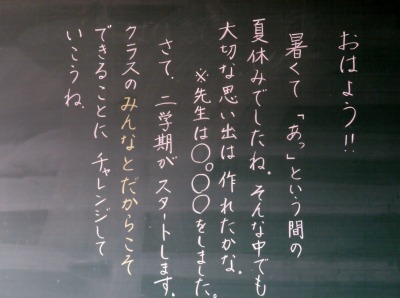 おはよう!!
暑くて「あっ」という間の
夏休みでしたね。そんな中でも
大切な思い出は作れたかな。
※先生は〇。〇〇をしました。
さて、二学期がスタートします。
クラスのみんなとだからこそ
できることに チャレンジして
いこうね。